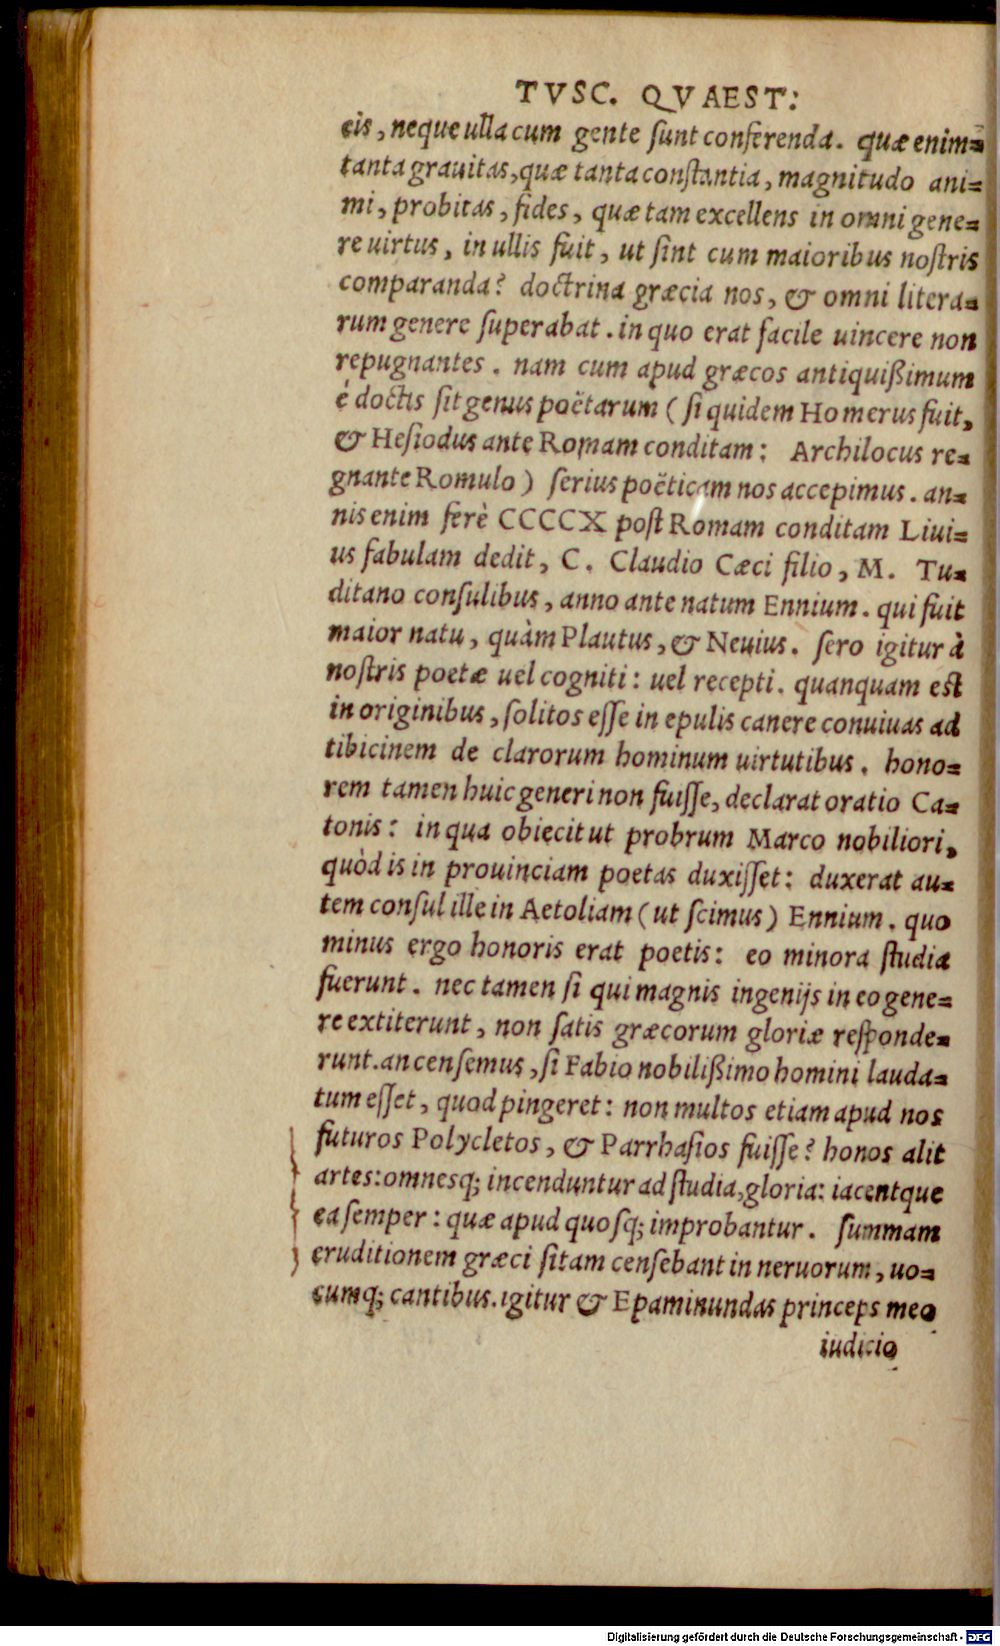 TVSC. QVAEST:
cis, neque ulla cum gente ſunt conferenda. quæ enim=
tanta grauitas, quæ tanta conſtantia, magnitudo ani=
mi, probitas, fides, quæ tam excellens in omni gene=
re uirtus, in ullis fuit, ut ſint cum maioribus noſtris
comparanda? doctrina græcia nos, & omni litera=
rum genere ſuperabat. in quo erat facile uincere non
repugnantes. nam cum apud græcos antiquißimum
è doctis ſit genus poëtarum (ſi quidem Homerus fuit,
& Heſiodus ante Romam conditam: Archilocus re=
gnante Romulo) ſerius poëticam nos accepimus. an=
nis enim ferè CCCCX poſt Romam conditam Liui=
us fabulam dedit, C. Claudio Cæci filio, M. Tu=
ditano conſulibus, anno ante natum Ennium. qui fuit
maior natu, quàm Plautus, & Neuius. ſero igitur à
noſtris poetæ uel cogniti: uel recepti. quanquam est
in originibus, ſolitos eſſe in epulis canere conuiuas ad
tibicinem de clarorum hominum uirtutibus. hono=
rem tamen huic generi non fuiſſe, declarat oratio Ca=
tonis: in qua obiecit ut probrum Marco nobiliori,
quòd is in prouinciam poetas duxiſſet: duxerat au=
tem conſul ille in Aetoliam (ut ſcimus) Ennium. quo
minus ergo honoris erat poetis: eo minora ſtudia
fuerunt. nec tamen ſi qui magnis ingenijs in eo gene=
re extiterunt, non ſatis græcorum gloriæ reſponde=
runt. an cenſemus, ſi Fabio nobilißimo homini lauda=
tum eſſet, quod pingeret: non multos etiam apud nos
futuros Polycletos, & Parrhaſios fuiſſe? honos alit
artes: omnesq; incenduntur ad ſtudia, gloria: iacentque
ea ſemper: quæ apud quoſq; improbantur. ſummam
eruditionem græci ſitam cenſebant in neruorum, uo=
cumq; cantibus. igitur & Epaminundas princeps meo
iudicio
Digitalisierung gefördert durch die Deutsche Forschungsgemeinschaft - DFG